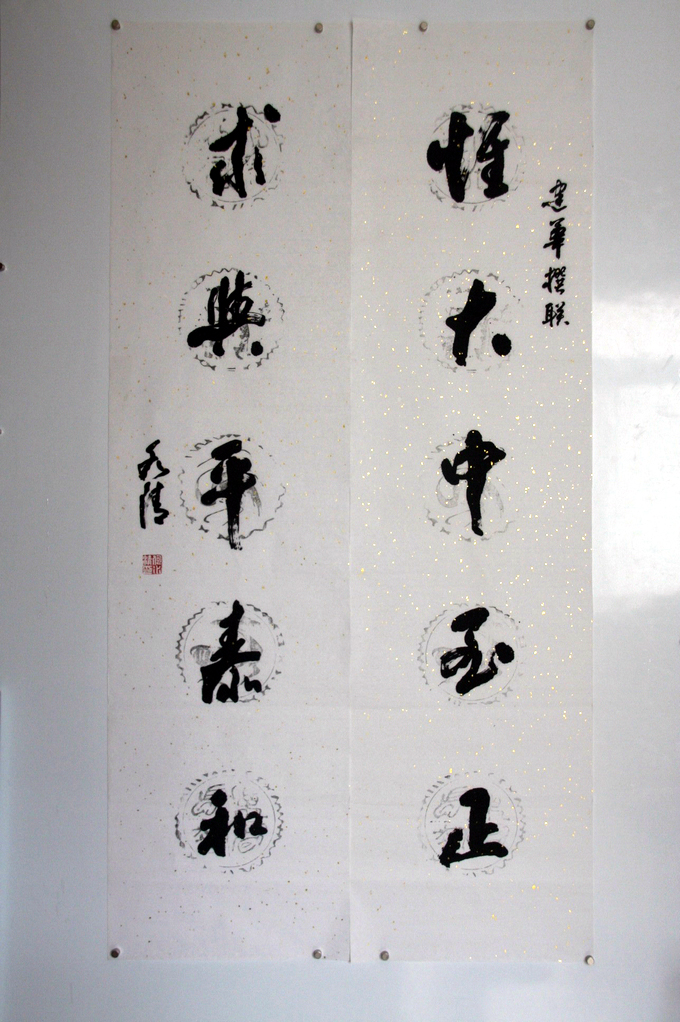 建華撰联
惟大中至正
求興平泰和
永清